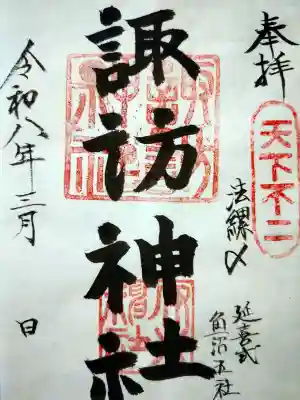 奉拝
天下不二
法螺〆
延喜式
角沼五社
諏訪神社
令和八年三月
日